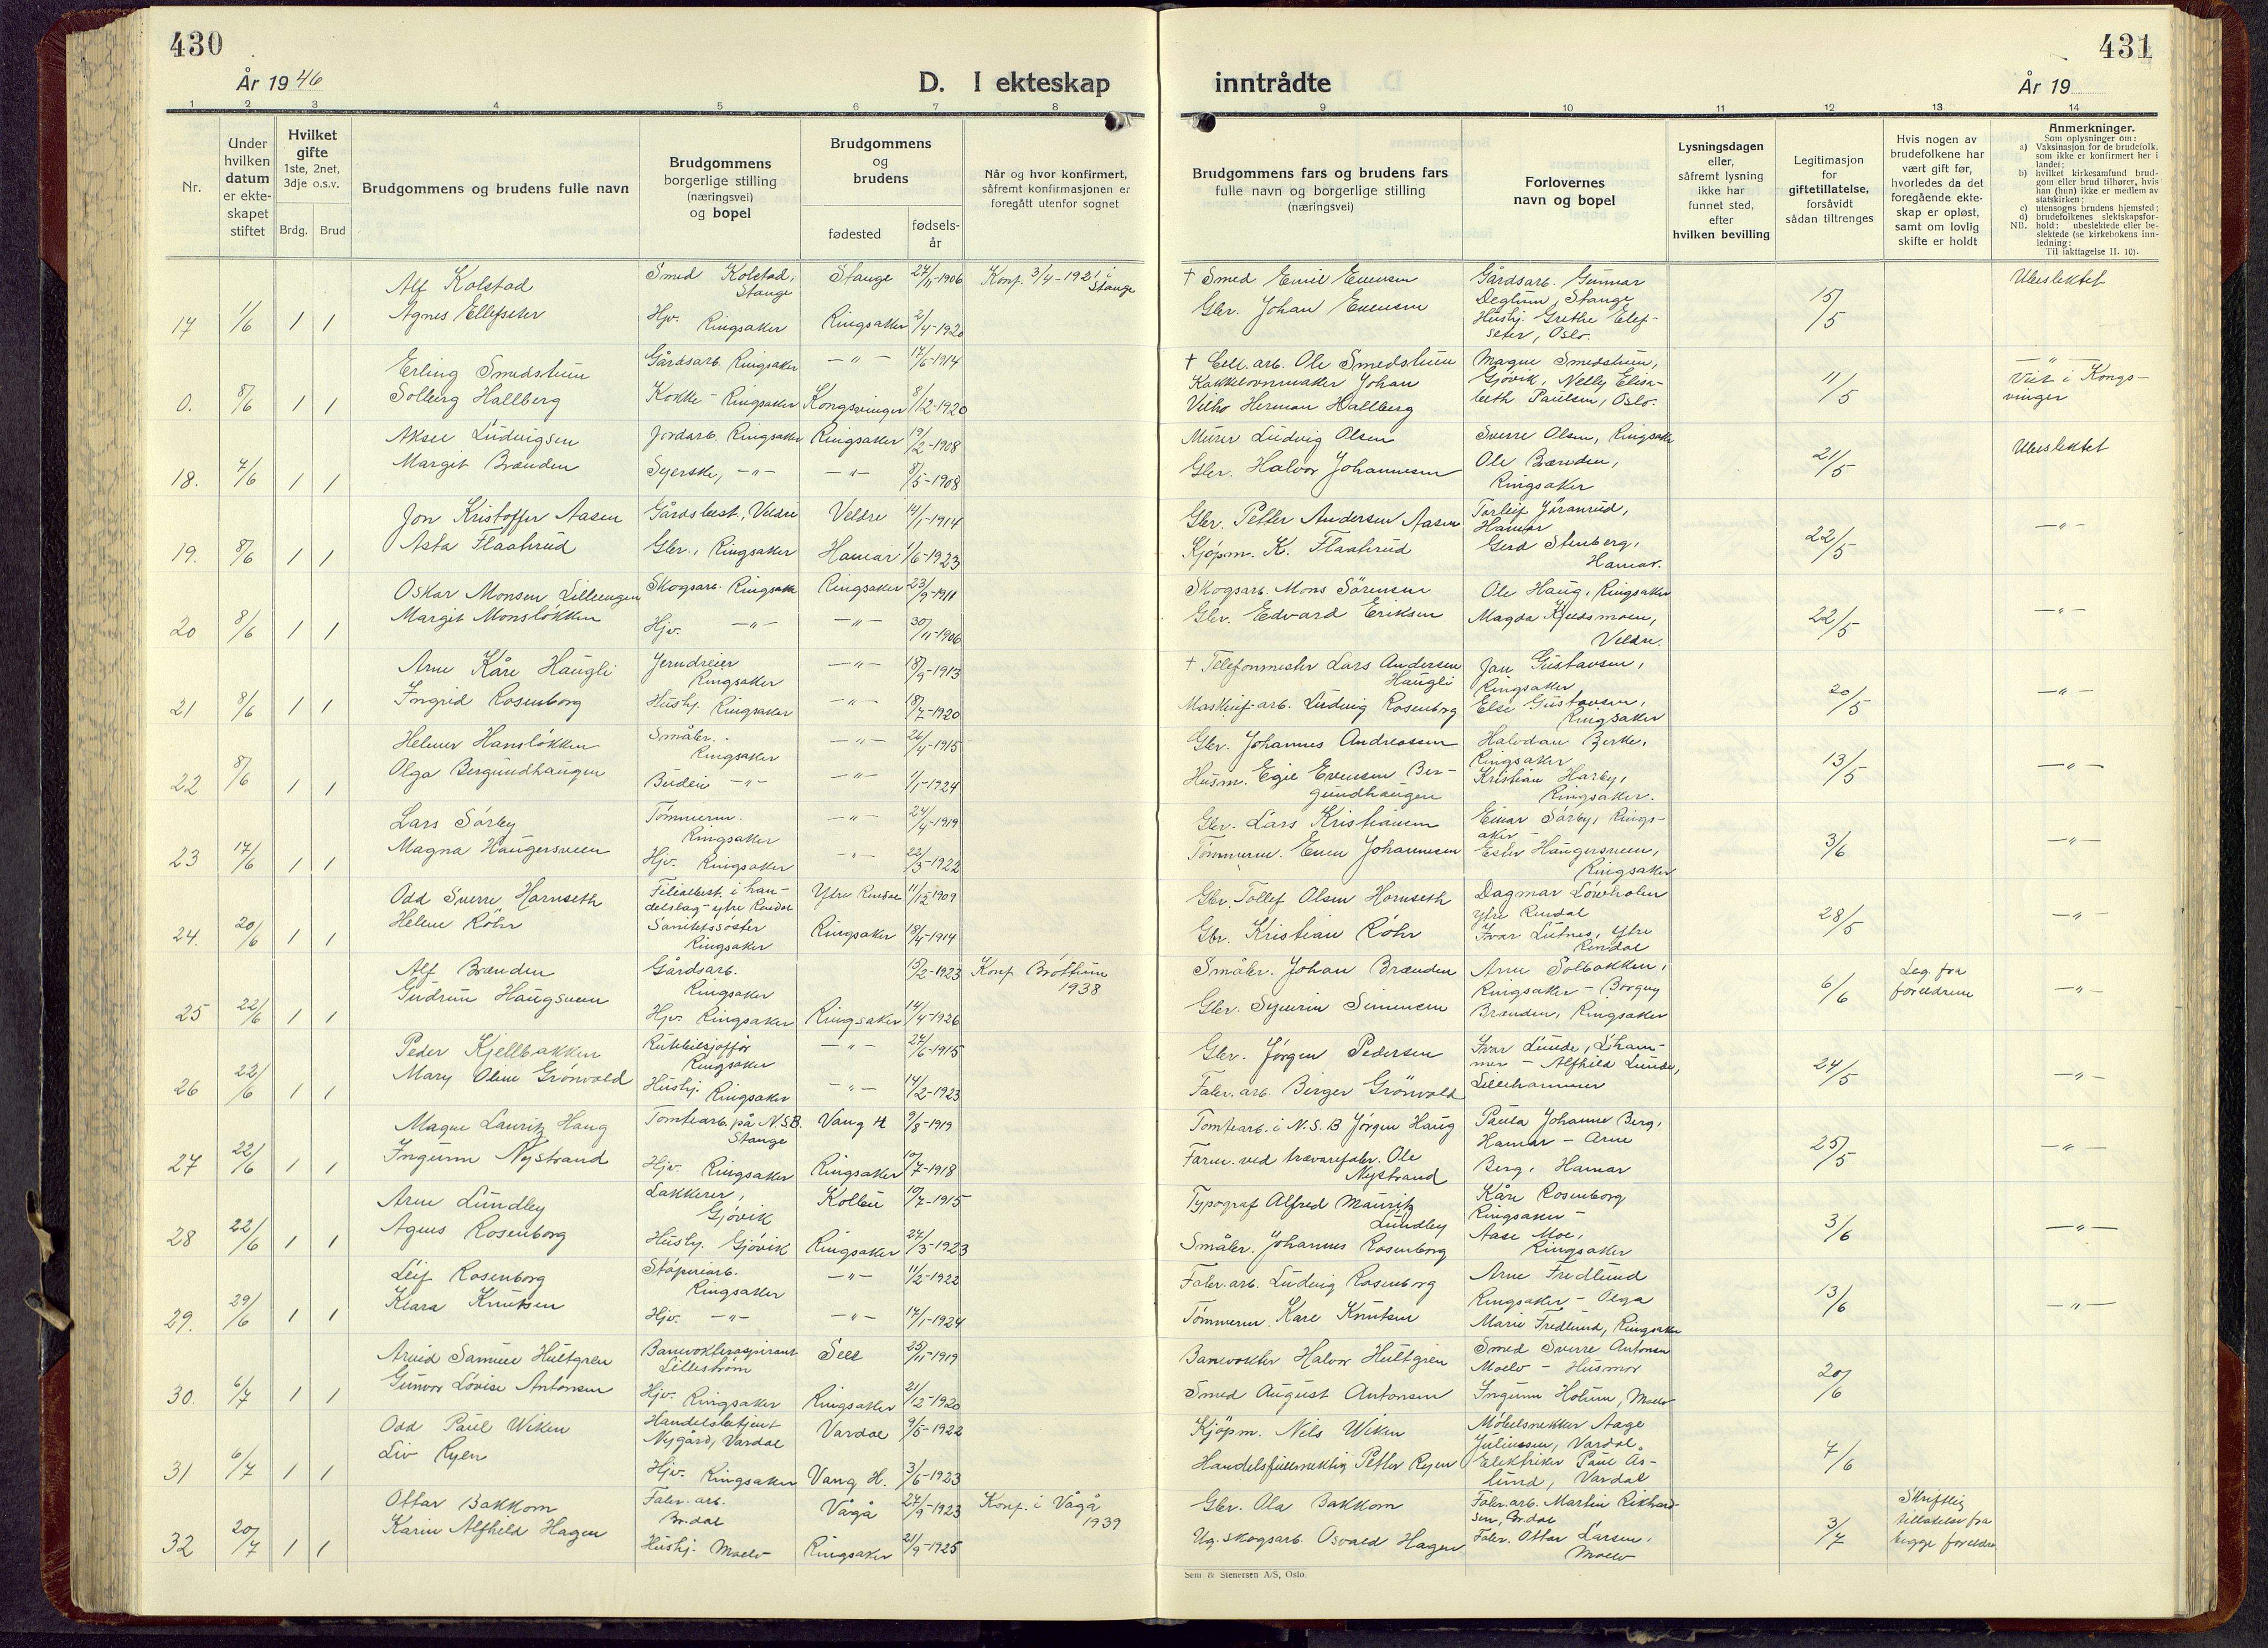 430
År 1946
D. I ekteskap
1 2 3 4 5 6 7 8
Nr.
Under hvilken datum er ekte-skapet stiftet
Hvilket gifte 1ste, 2net, 3dje o.s.v.
Brdg. Brud
Brudgommens og brudens fulle navn
Brudgommens borgerlige stilling (næringsvei) og bopel
Brudgommens og brudens
fødested
fødsels-år
Når og hvor konfirmert, såfremt konfirmasjonen er foregått utenfor sognet
Alf Kolstad Smed Kolstad, Stange Stange 27/11-1906 Konf. 3/4-1921 i Stange
17 1/6 1 1 Agnes Ellefseter Hjv. Ringsaker Ringsaker 2/4-1920
Erling Smedstuen Gårdsarb. Ringsaker —"— 17/6-1914
0. 8/6 1 1 Solberg Hallberg Kokke - Ringsaker Kongsvinger 8/12-1920
Aksel Ludvigsen Jordarb. Ringsaker Ringsaker 19/2-1908
18. 7/6 1 1 Margit Brænden Syerske, —"— —"— 8/5-1908
Jon Kristoffer Aasen Gårdsbest., Veldre Veldre 14/1-1914
19. 8/6 1 1 Asta Flaatrud Gbr., Ringsaker Hamar 1/6-1923
Oskar Monsen Lilleengen Skogsarb. Ringsaker Ringsaker 23/9-1911
20 8/6 1 1 Margit Monsløkken Hjv. —"— —"— 30/11-1906
Arne Kåre Haugli Jerndreier Ringsaker —"— 18/9-1913
21 8/6 1 1 Ingrid Rosenborg Hushj. Ringsaker —"— 18/7-1920
Helmer Hansløkken Småbr. Ringsaker —"— 26/4-1915
22 8/6 1 1 Olga Bergundhaugen Budeie —"— —"— 1/1-1924
Lars Sørby Tømmerm. Ringsaker —"— 24/4-1919
23 17/6 1 1 Magna Haugersveen Hjv. Ringsaker —"— 22/3-1922
Odd Sverre Hornseth Filialbest. i han-delslag - ytre Rendal Ytre Rendal 11/12 1909
24. 20/6 1 1 Helene Röhr Sanitetssøster Ringsaker Ringsaker 18/4-1914
Alf Brænden Gårdsarb. Ringsaker 15/2-1923 Konf. Brøttum 1938
25 22/6 1 1 Gudrun Haugsveen Hjv. Ringsaker Ringsaker 14/4-1926
Peder Kjellbakken Rutebilsjåfför Ringsaker —"— 27/6-1915
26 22/6 1 1 Mary Oline Grönvold Hushj. Ringsaker —"— 14/2-1923
Magne Lauritz Haug Tomtearb. på N.S.B. Stange Vang H 9/8-1919
27 22/6 1 1 Ingunn Nystrand Hjv. Ringsaker Ringsaker 10/7-1918
Arne Lundby Lakkerer, Gjøvik Kolbu 10/7-1915
28 22/6 1 1 Agnes Rosenborg Hushj. Gjøvik Ringsaker 27/3-1923
Leif Rosenborg Støperiarb. Ringsaker —"— 11/2-1922
29. 29/6 1 1 Klara Knutsen Hjv. —"— —"— 17/1-1924
Arvid Samuel Hultgren Banevokteraspirant Lillestrøm Sell 25/11-1919
30. 6/7 1 1 Gunvor Lovise Antonsen Hjv. Ringsaker Ringsaker 21/12-1920
Odd Paul Wiken Handelsbetjent Nygård, Vardal Vardal 9/5-1922
31 6/7 1 1 Liv Ryen Hjv. Ringsaker Vang H. 3/6-1923
Ottar Bakkom Fabr. arb. Br.dal Vågå 27/9-1923 Konf. i Vågå 1939
32 20/7 1 1 Karin Alfhild Hagen Hushj. Moelv Ringsaker 21/9-1925
431
inntrådte
År 19
9 10 11 12 13 14
Brudgommens fars og brudens fars fulle navn og borgerlige stilling (næringsvei)
Forlovernes navn og bopel
Lysningsdagen eller, såfremt lysning ikke har funnet sted, efter hvilken bevilling
Legitimasjon for giftetillatelse, forsåvidt sådan tiltrenges
Hvis nogen av brudefolkene har vært gift før, hvorledes da det foregående ekte-skap er opløst, samt om lovlig skifte er holdt
Anmerkninger.
Som oplysninger om:
a) Vaksinasjon for de brudefolk, som ikke er konfirmert her i landet;
b) hvilket kirkesamfund brud-gom eller brud tilhører, hvis han (hun) ikke er medlem av statskirken;
c) utensogns brudens hjemsted;
d) brudefolkenes slektskapsfor-hold: ubeslektede eller be-slektede (se kirkebokens inn-ledning:
NB. Til iakttagelse II. 10).
† Smed Emil Evensen Gårdsarb. Gunnar Deglum, Stange Ubeslektet
Gbr. Johan Evensen Hushj. Grethe Elef-seter, Oslo. 15/5
† Cell. arb. Ole Smedstuen Magne Smedstuen, Gjøvik, Nelly Elisa-beth Paulsen, Oslo. —"—
Kakkelovnmaker Johan Vilho Herman Hallberg 11/5 Viet i Kongs-vinger
Murer Ludvig Olsen Sverre Olsen, Ringsaker Ubeslektet
Gbr. Halvor Johannesen Ole Brænden, Ringsaker 21/5
Gbr. Petter Andersen Aasen Torleif Jöranrud, Hamar —"—
Kjøpm. K. Flaatrud Gerd Stenberg, Hamar. 22/5
Skogsarb. Mons Sörensen Ole Haug, Ringsaker —"—
Gbr. Edvard Eriksen Magda Kjelsmoen, Veldre. 22/5
† Telefonmester Lars Andersen Haugli Jan Gustavsen, Ringsaker
Maskinf.arb. Ludvig Rosenborg Else Gustavsen, Ringsaker 20/5 —"—
Gbr. Johannes Andreassen Halvdan Berke, Ringsaker
Husm. Egil Evensen Ber-gundhaugen Kristian Harby, Ringsaker. 13/5 —"—
Gbr. Lars Kristiansen Einar Sørby, Rings-aker -
Tømmerm. Even Johannesen Ester Haugersveen, Ringsaker 3/6 —"—
Gbr. Tollef Olsen Hornseth Dagmar Løvholen Ytre Rendal
Gbr. Kristian Röhr Ivar Lutnes, Ytre Rendal 28/5 —"—
Småbr. Johan Brænden Arne Solbakken, Ringsaker - Borgny Leg. fra foreldrene
Gbr. Syverin Simensen Brænden, Ringsaker 6/6 —"—
Gbr. Jørgen Pedersen Ivar Lunde, L.ham-mer - Alfhild Lunde,
Fabr. arb. Birger Grönvold Lillehammer 24/5 —"—
Tomtearb. i N.S.B Jörgen Haug Paula Johanne Berg, Hamar - Arne
Form. ved trævarefabr. Ole Nystrand Berg, Hamar 25/5 —"—
Typograf Alfred Mauritz Lundby Kåre Rosenborg Ringsaker -
Småbr. Johannes Rosenborg Aase Moe, Ringsaker 3/6 —"—
Fabr. arb. Ludvig Rosenborg Arne Fredlund Ringsaker - Olga
Tømmerm. Kåre Knutsen Marie Fredlund, Ringsaker 13/6 —"—
Banevokter Halvor Hultgren Smed Sverre Antonsen Moelv - Husmor
Smed August Antonsen Ingunn Holum, Moelv 20/6
Kjöpm. Nils Wiken Møbelsnekker Aage Juliussen, Vardal.
Handelsfullmektig Petter Ryen Elektriker Paul As-lund, Vardal 7/6
Gbr. Ola Bakkom Fabr. arb. Martin Rikhard-sen, Br.dal Skriftlig tillatelse fra begge foreldre
Ug. skogsarb. Osvald Hagen Fabr. Ottar Larsen, Moelv 3/7
Sem & Stenersen A/S, Oslo.